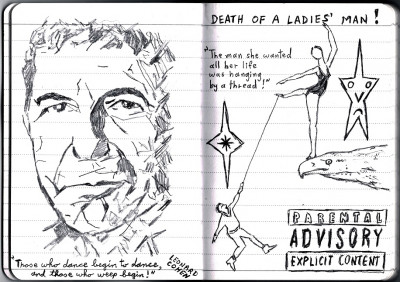 "Those who dance begin to dance,
and those who weep begin!"
LEONARD
COHEN
DEATH OF A LADIES' MAN!
"The man she wanted
all her life
was hanging
by a thread!"
PARENTAL
ADVISORY
EXPLICIT CONTENT